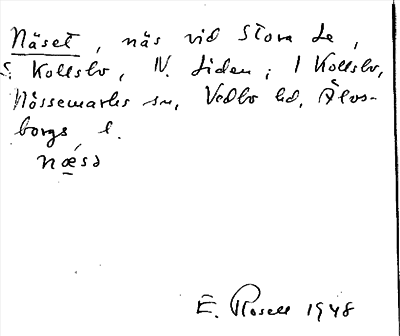 Näset, näs vid Stora Le,
S. Kollsbo, N. sidan, i Kollsbo,
Nössemarks sn, Vedbo hd, Älvs-
borgs l.
næsə
E. Rosell 1948